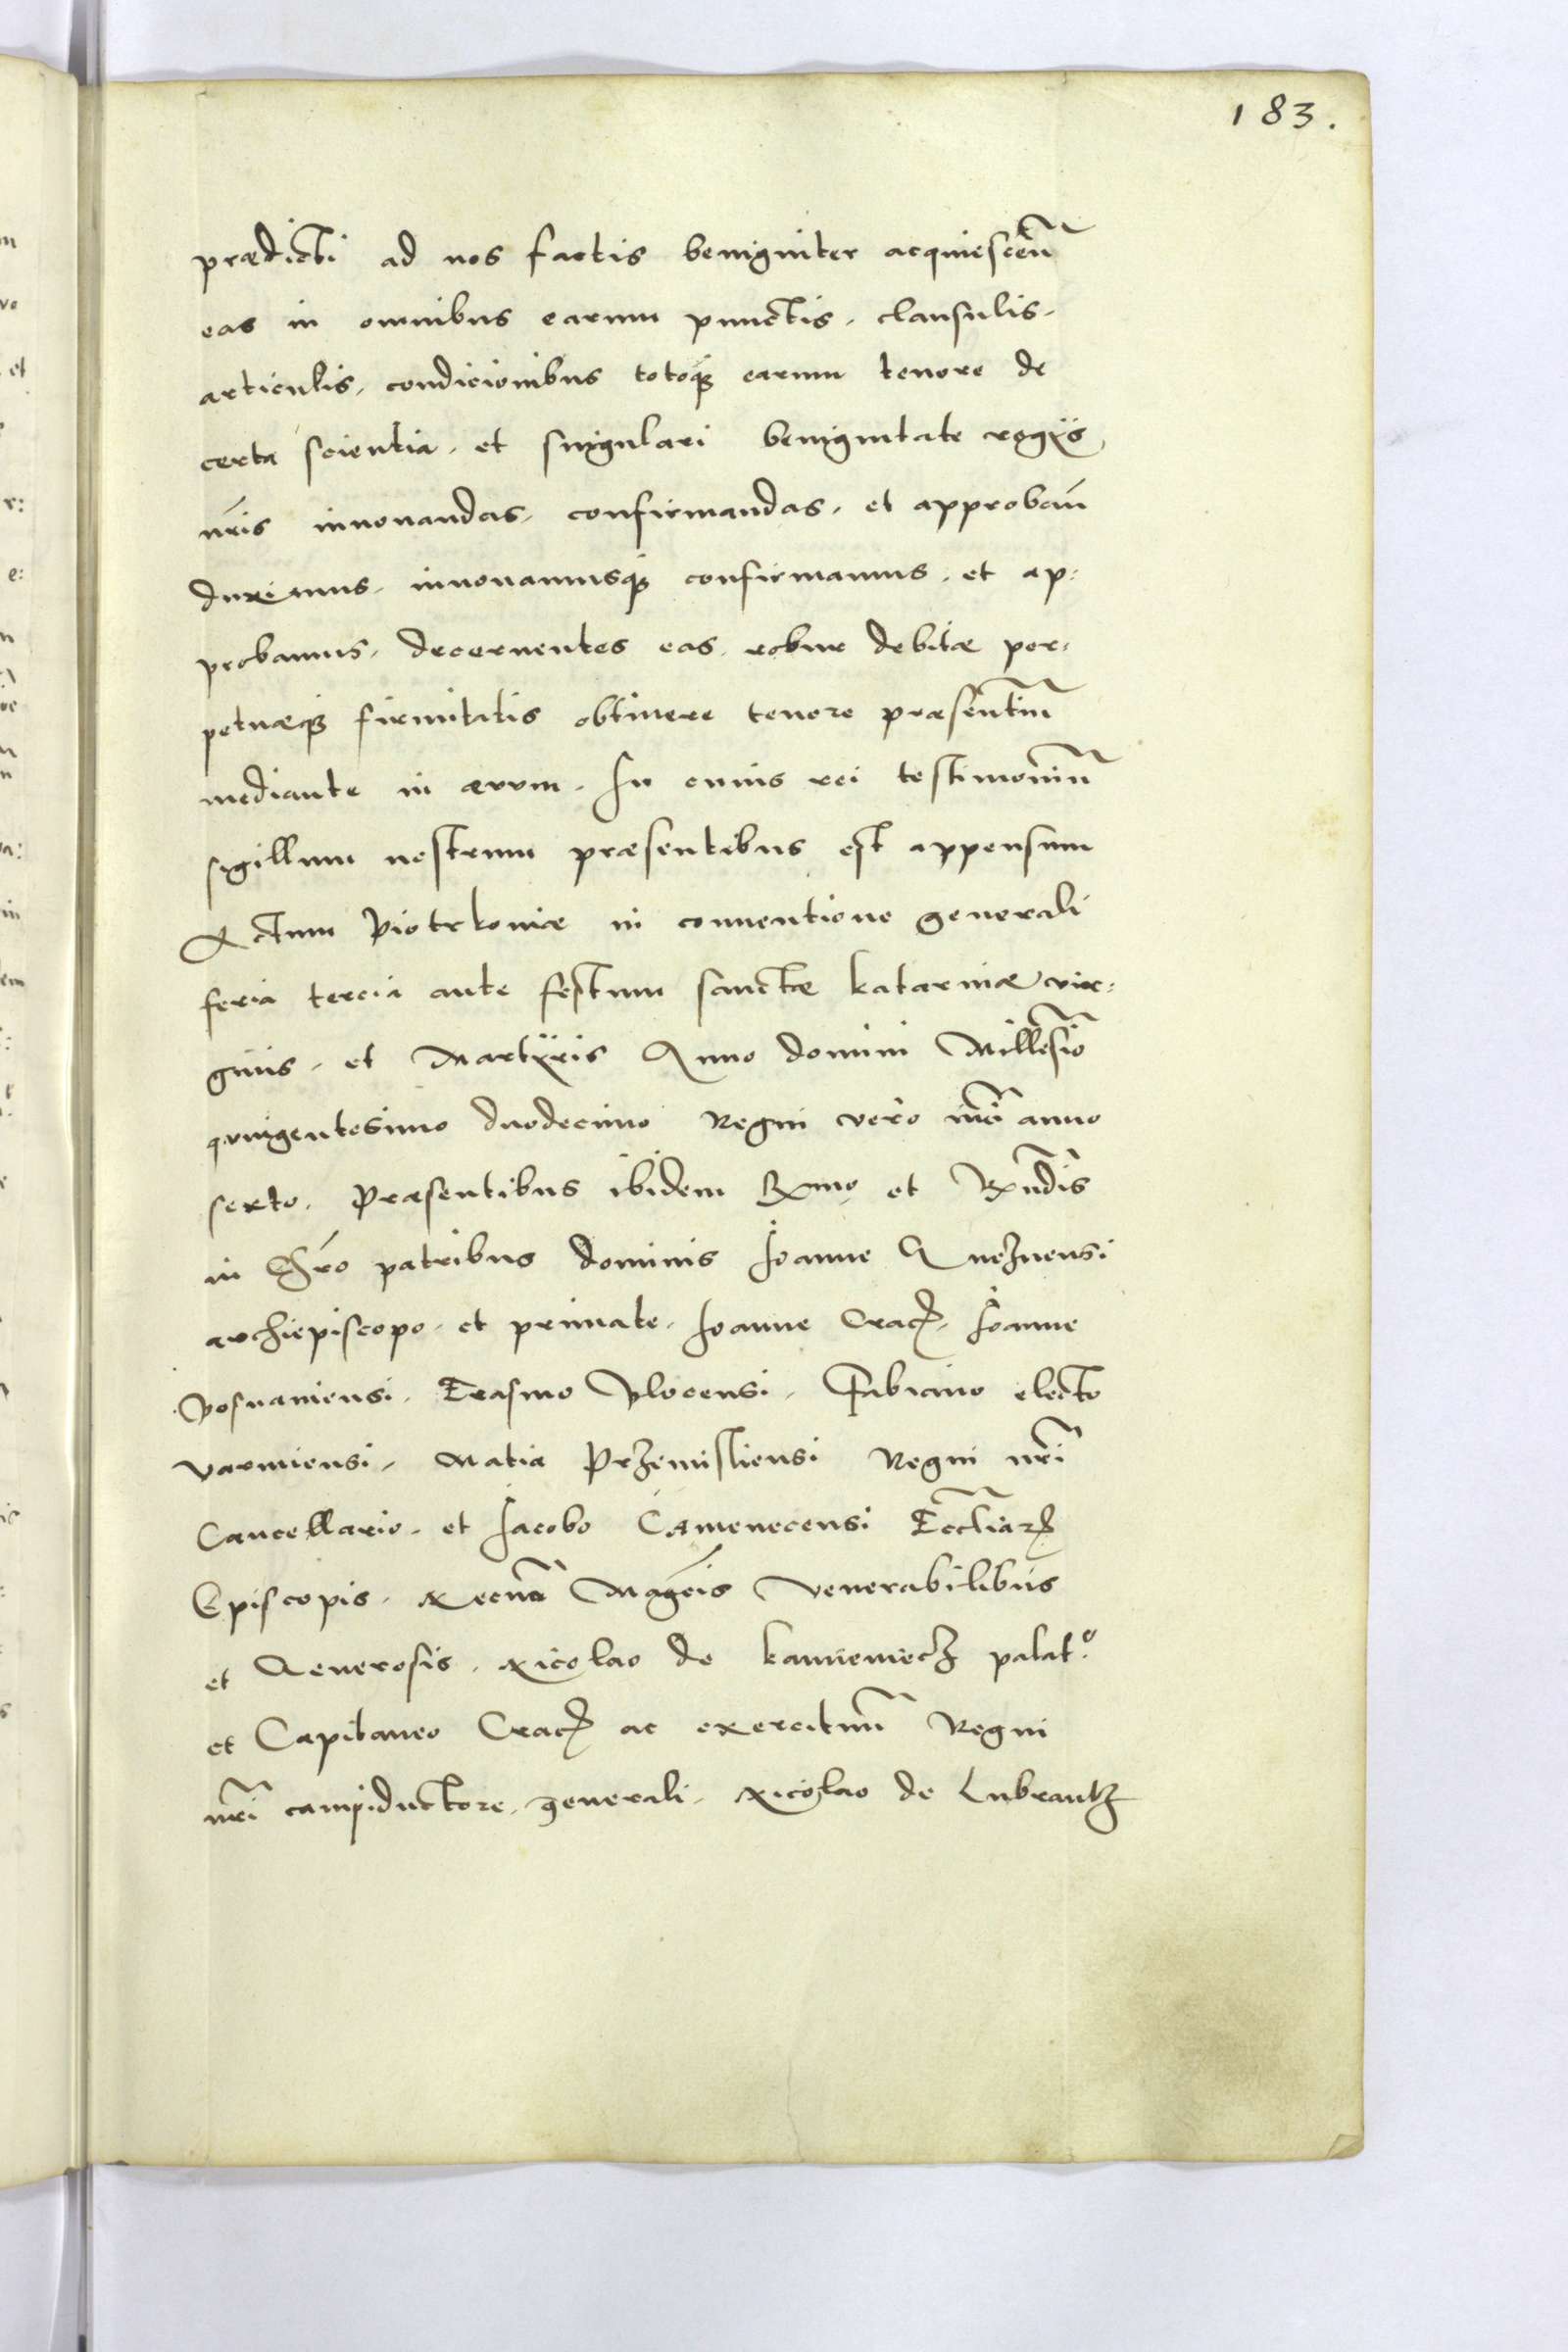 183.
prædicti ad nos factis benigniter acquiescen̄
eas in omnibus earum punctis, clausulis,
articulis, condicionibus totoq̃ earum tenore de
certa scientia, et singulari benignitate regijs
nr̄is innouandas, confirmandas, et approban̄
duximus, innouamusq̃ confirmamus, et ap:
probamus, decernentes eas robur debitæ per:
petuæq̃ firmitatis obtinere tenore præsentiū
mediante in ævvm. In cuius rei testimoniū
sigillum nostrum præsentibus est appensum
Actum Piotrkoviæ in conuentione generali
feria tercia ante festum sanctæ Katarinæ vir:
ginis, et Martÿris Anno domini Millesīo
qvingentesimo duodecimo Regni vero nr̄i anno
sexto. Præsentibus ibidem Rx̄mo et Rn̄dis
in Chr̄o patribus dominis Joanne Gneznensi
archiepiscopo et primate, Joanne Crac̄, Joanne
Posnaniensi, Erasmo Plocensi, Fabiano electo
varmiensi, Matia Przemisliensi Regni nr̄i
Cancellario, et Jacobo Camenecensi Eccl̄iar̄
Episcopis, Necnō Mag̅cis Venerabilibus
et Generosis, Nicolao de Kamieniecz palat.º
et Capitaneo Crac̄ ac exercituū Regni
nr̄i campiductore generali, Nicolao de Lubrantz